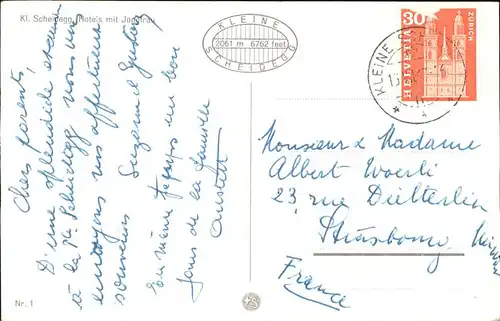 Kl. Scheidegg, Hotels mit Jungfrau
KLEINE
2061 m 6762 feet
SCHEIDEGG
30
HELVETIA
ZÜRICH
KLEINE
Chers parents,
D'une splendide excursion
à la Pte Scheidegg nous vous
envoyons nos affectueux
souvenirs Suzanne Gustav
En même temps un bon
de la famille
Anstett
Monsieur & Madame
Albert Woerli
23 rue
Strasbourg
France
Nr. 1